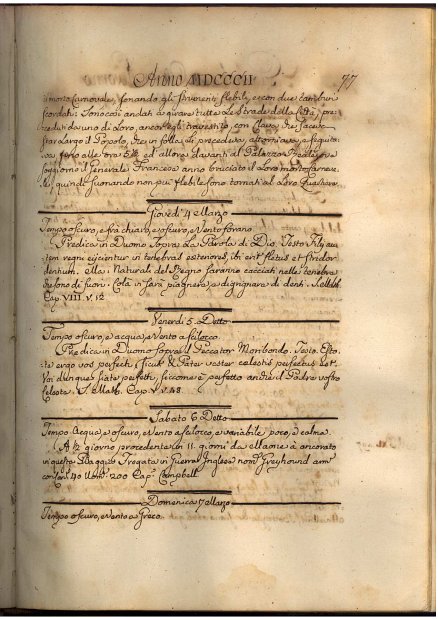 Anno MDCCCII
77
il morto Carnovale, sonando gli strumenti flebili, e con due tamburi
scordati. Sono così andati a girare tutte le strade della Città, pre-
ceduti da uno di Loro, ancor egli travestito, con Clava che facea
star largo il Popolo, che in folla gli precedeva, attorniava, e seguita-
va: fino alle ore 5 ed allora davanti al Palazzo
soggiorno il Generale Francese anno bruciato il Loro morto Carnova-
le, quindi suonando non più flebile sono tornati al Loro Quartiere.
Giovedì 4 Marzo
Tempo oscuro, e fra chiaro, e oscuro, e Vento forano
Predica in Duomo Sopra la Parola di Dio. Testo. Filii au-
tem regni ejicientur in tenebras exteriores, ibi erit fletus et stridor
dentium. Ma i Naturali del Regno saranno cacciati nelle tenebre
che sono di fuori. Cola in sarà piagnere, e digrignare di denti. S. Matth.
Cap. VIII. v. 12
Venerdì 5. Detto
Tempo oscuro, e acqua, e Vento a scilocco
Predica in Duomo sopra il Peccator Moribondo. Testo. Esto-
te ergo vos perfecti, sicut & Pater vester celestis perfectus est.
Voi dunque siate perfetti, siccome è perfetto anche il Padre vostro
Celeste. S. Matth. Cap. V. v. 48.
Sabato 6 Detto
Tempo Acqua, e oscuro, e Vento a scilocco, e variabile poco, e calma.
A ½ giorno procedente in 11. giorni da Maone è ancorato
in questo Paraggio Fregata in Guerra Inglese nom: Greyhound arm:
con Can: 40 Uom: 200 Cap: Campbell
Domenica 7 Marzo
Tempo oscuro, e Vento a Greco.